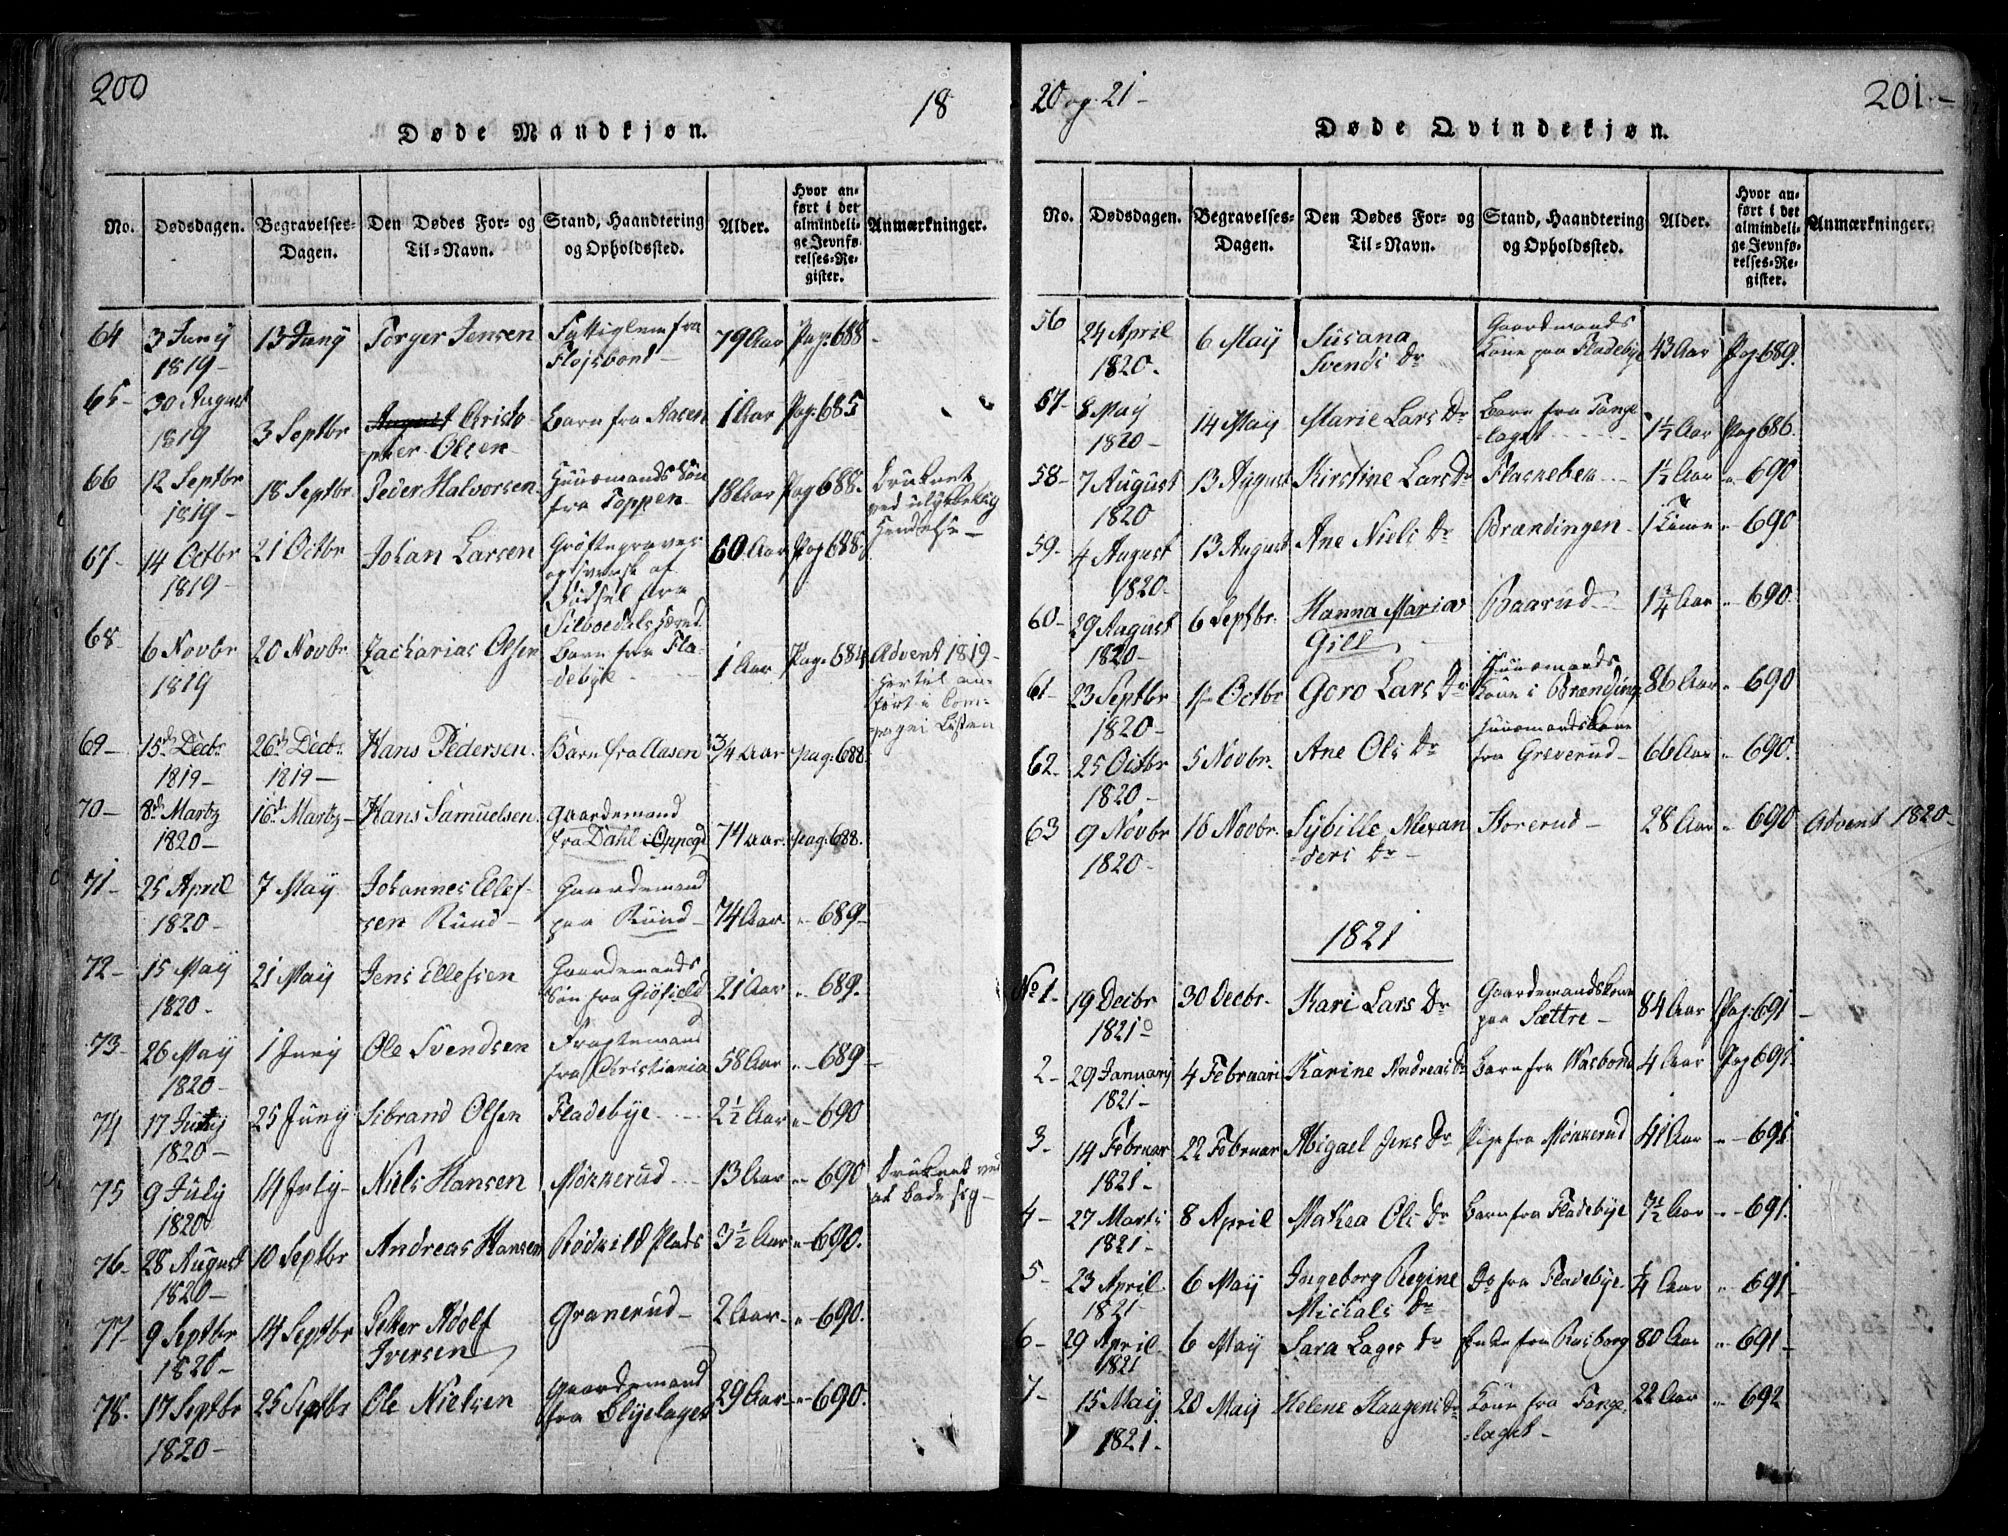 200
18
Døde Mandkjøn.
No. Dødsdagen. Begravelses-Dagen. Den Dødes For- og Til-Navn. Stand, Haandtering og Opholdssted. Alder. Hvor anført i det almindelige Jevnførelses-Register. Anmærkninger.
64 3 Juny 1819 - 13 Juny Torger Jensen fra Flojsbond - 79 Aar Pag. 688.
65 - 30 August 1819 3 Septbr Christopher Olsen Barn fra Aasen 1 Aar Pag. 685
66 12 Septbr 1819 - 18 Septbr. Peder Halvorsen Huusmands Søn fra Toppen 18 Aar Pag 688. Druknet ved ulykkelig Hendelse -
67 - 14 Octbr 1819 - 21 Octbr Johan Larsen Grøftegraver og Svensk af Fødsel fra 60 Aar Pag 688
68 6 Novbr 1819 20 Novbr Zacharias Olsen Barn fra Fladebye 1 Aar Pag. 684 Advent 1819 - Hertil anført i Compagni Listen
69 - 15d Decbr 1819 - 26d Decbr. 1819 - Hans Pedersen. Barn fra Aasen 3/4 Aar Pag. 688.
70 - 8d Martz 1820 - 16d Martz - Hans Samuelsen. Gaardemand fra Dahl i Oppegd 74 Aar. Pag. 688.
71 - 25 April 1820 - 7 May Johannes Ellefsen Ruud - Gaardemand paa Ruud - 74 Aar " - 689 -
72 - 15 May 1820 - 21 May Jens Ellefsen Gaardemands Søn fra Giøfield 21 Aar " 689.
73 - 26 May 1820 - 1 Juny Ole Svendsen fra Christiania 58 Aar " - 689 -
74 17 July 1820 - 25 Juny Sibrand Olsen Fladebye 2 1/2 Aar " - 690
75 9 July 1820 14 July - Niels Hansen Møkkerud 13 Aar " 690 Druknet ved at bade sig -
76 - 28 August 1820 - 10 Septbr Andreas Hansen Rødkild Plads 3 1/2 Aar " - 690.
77 - 9 Septbr 1820 - 14 Septbr Petter Adolf Iversen Granerud - 2 Aar " - 690.
78. 17 Septbr 1820 - 25 Septbr Ole Nielsen Gaardemand fra Blyelaget 29 Aar - 690.
20 og 21 -
201 -
Døde Qvindekjøn.
No. Dødsdagen. Begravelses-Dagen. Den Dødes For- og Til-Navn. Stand, Haandtering og Opholdssted. Alder. Hvor anført i det almindelige Jevnførelses-Register. Anmærkninger.
56 24 April 1820 - 6 May Susana Svends Dr Gaardmands Kone paa Fladebye 43 Aar Pag 689.
57 - 8 May 1820 - 14 May Marie Lars Dr Barn fra Tangelaget 1 1/2 Aar Pag 686.
58 - 7 August 1820 13 August Kirstine Lars Dr Flaskebek 1 1/2 Aar " - 690
59 - 4 August 1820 - 13 August Ane Niels Dr Brændingen 1 Time " - 690
60 - 29 August 1820 - 6 Septbr. Hanna Maria Gill Baarud 1 3/4 Aar " 690.
61 - 23 Septbr 1820 - 1st Octbr Goro Lars Dr Huusmands Kone i Brænding 86 Aar " - 690
62 - 25 Octbr 1820 - 5 Novbr. Ane Ols Dr Huusmandskone fra Greverud - 66 Aar " - 690.
63 9 Novbr 1820 - 16 Novbr. Sybille Alexanders Dr - Storerud - 28 Aar " - 690 Advent 1820 -
1821
No 1 - 19 Decbr 1820 30 Decbr. Kari Lars Dr Gaardemandskone paa Sættre - 84 Aar Pag. 691 -
2 - 29 January 1821 - 4 Februari Karine Andreas Dr Barn fra Wasbond 4 Aar Pag 691
3 - 14 Februar 1821 - 22 Februar Abigael Jens Dr Pige fra Møkkerud 41 Aar " - 691
4 - 27 Marts 1821 - 8 April Mathea Ols Dr Barn fra Fladebye 3 1/2 Aar " - 691.
5 - 23 April 1821 - 6 May Ingeborg Regine Michals Dr Do fra Fladebye 1/4 Aar " - 691
6 - 29 April 1821 6 May Sara Lages Dr Enke fra 80 Aar " - 691 -
7 - 15 May 1821 - 20 May Helene Haagens Dr Kone fra Tangelaget - 22 Aar " - 692